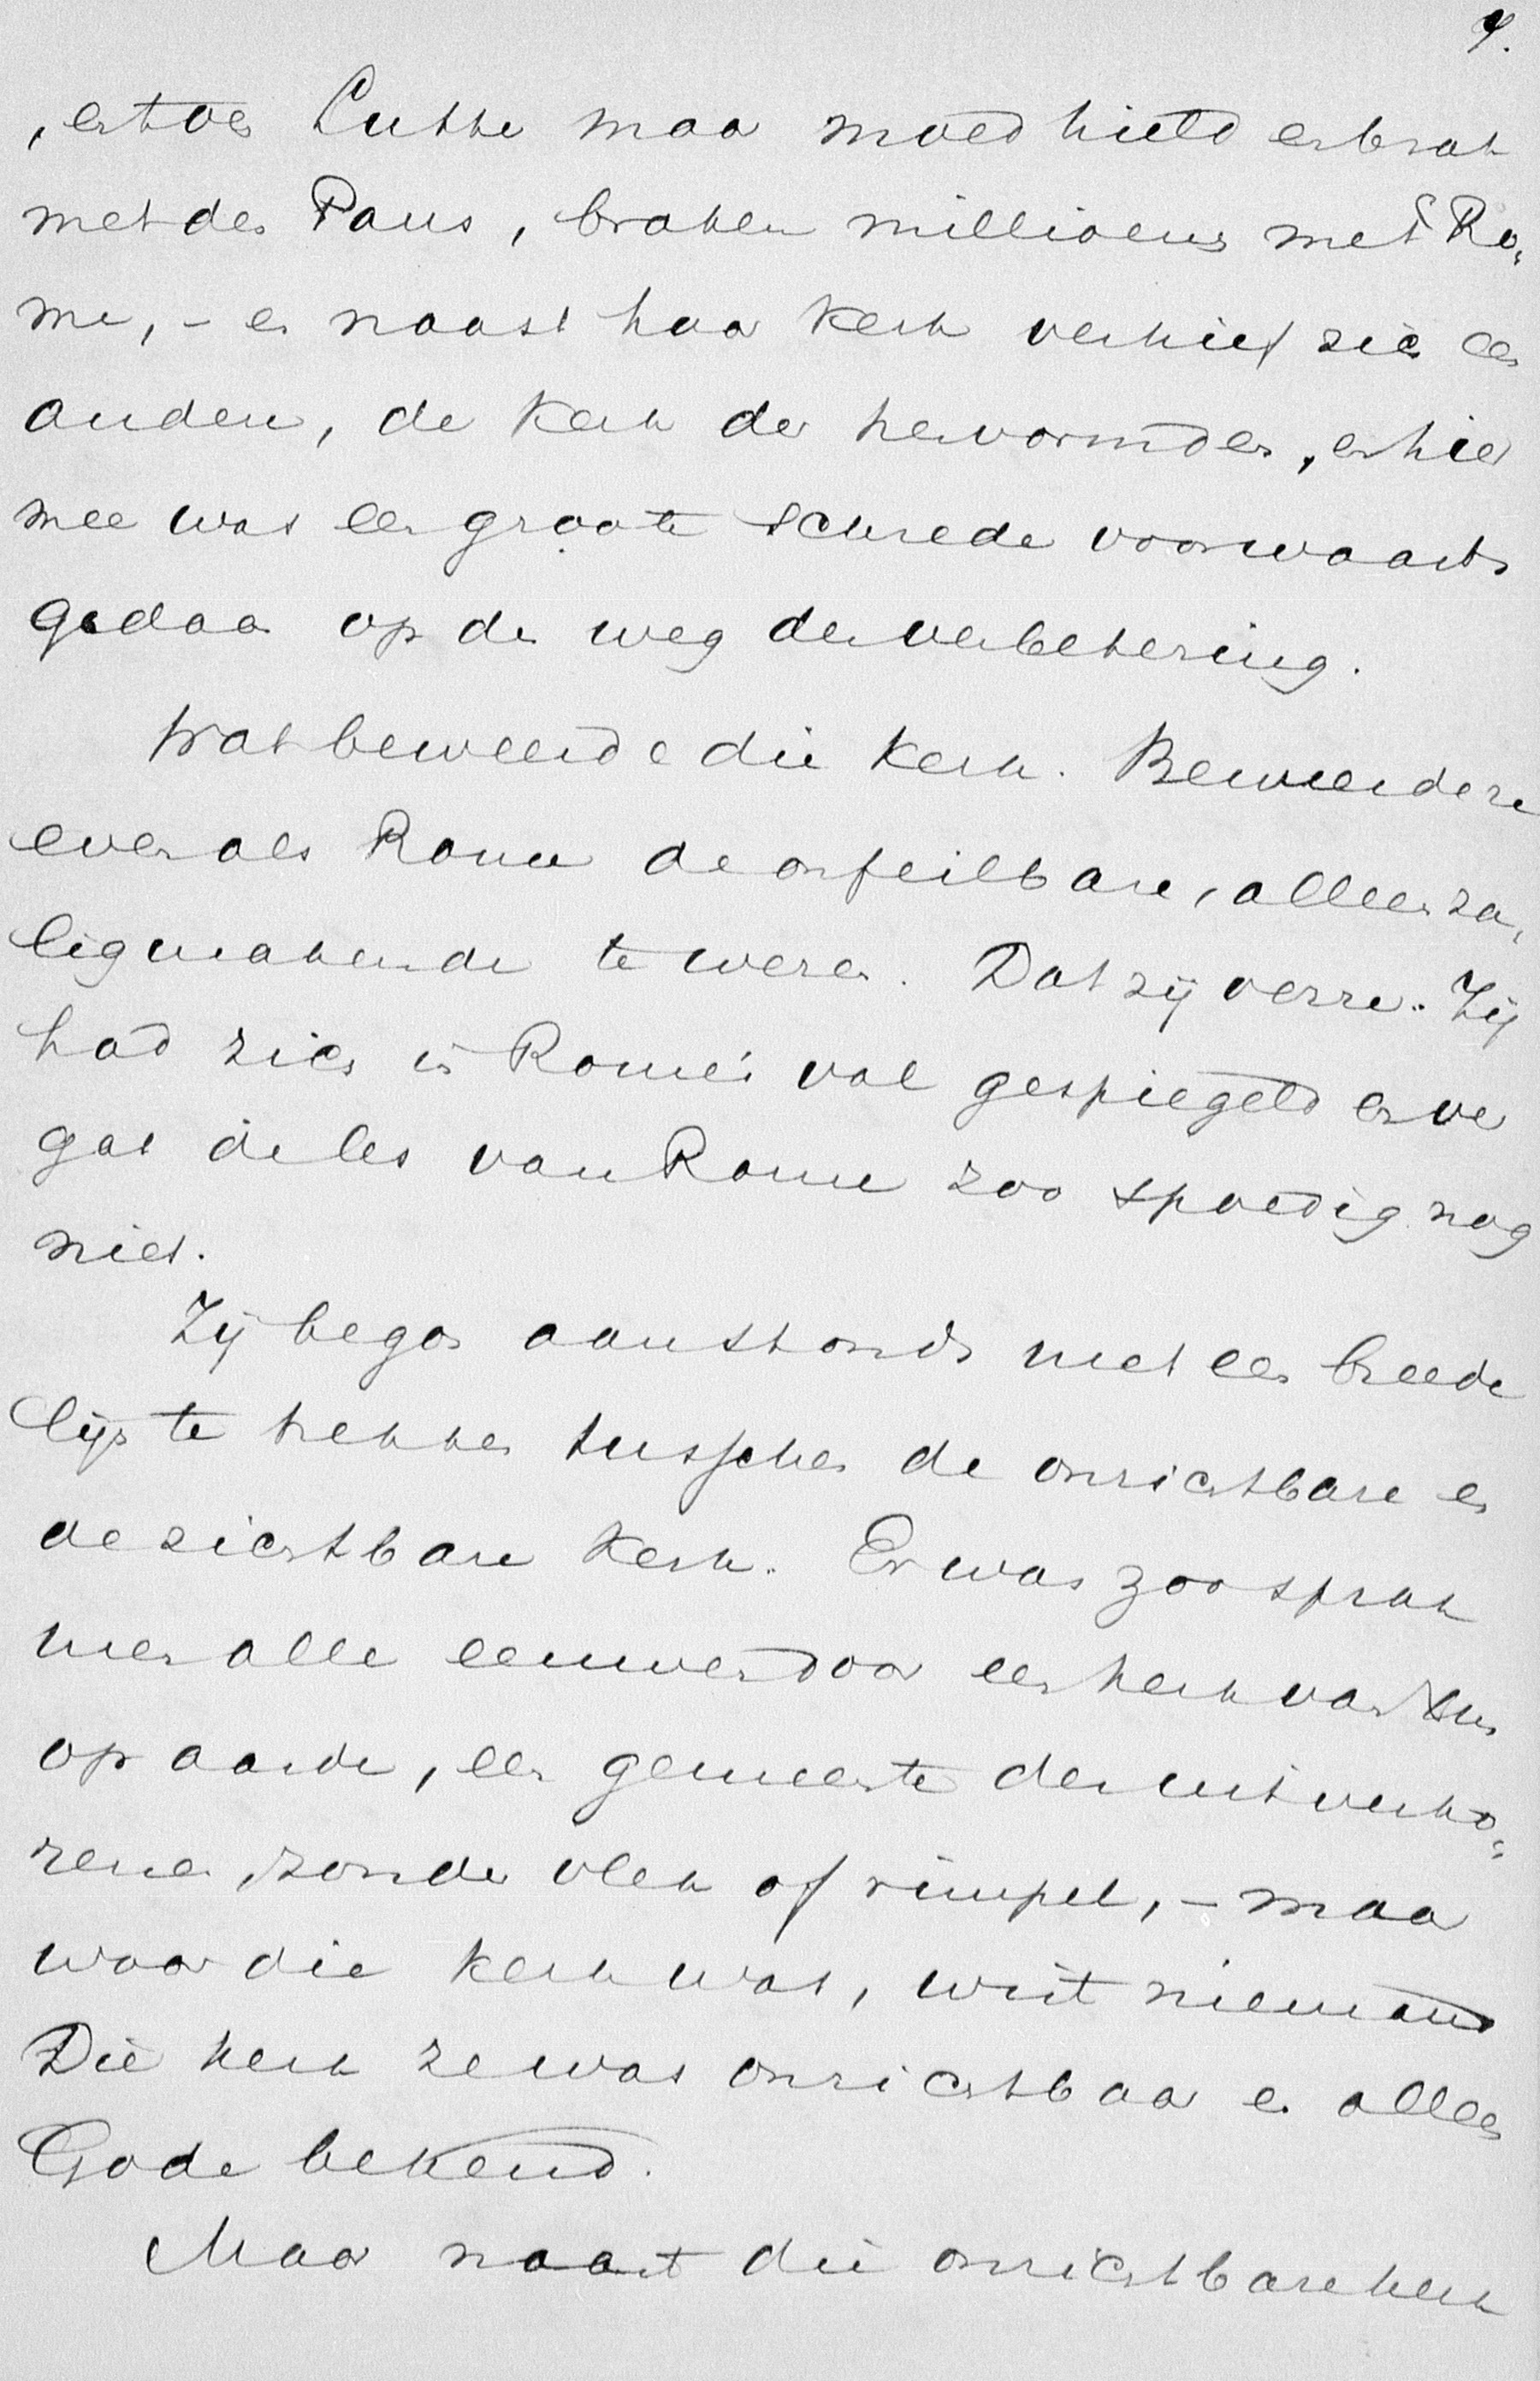 9.
, en toen Luther maar moed hield en brak
met den Paus, braken millioenen met Ro„
me, – en naast haar kerk verhief zich een
andere, de kerk der hervormden, en hier
mee was een groote schrede voorwaarts
gedaan op den weg der verbetering.
Wat beweerde die kerk. Beweerde ze
even als Rome de onfeilbare, alleen za„
ligmakende te wezen. Dat zij verre. Zij
had zich in Rome's val gespiegeld en ver
gat de les van Rome zoo spoedig nog
niet.
Zij begon aanstonds met een breede
lijn te trekken tusschen de onzichtbare en
de zichtbare kerk. Er was zoo sprak
men alle eeuwen door een kerk van Xus
op aarde, een gemeente der uitverko„
renen, zonder vlek of rimpel, – maar
waar die kerk was, wist niemand
Die kerk ze was onzichtbaar en alleen
Gode bekend.
Maar naast die onzichtbare kerk